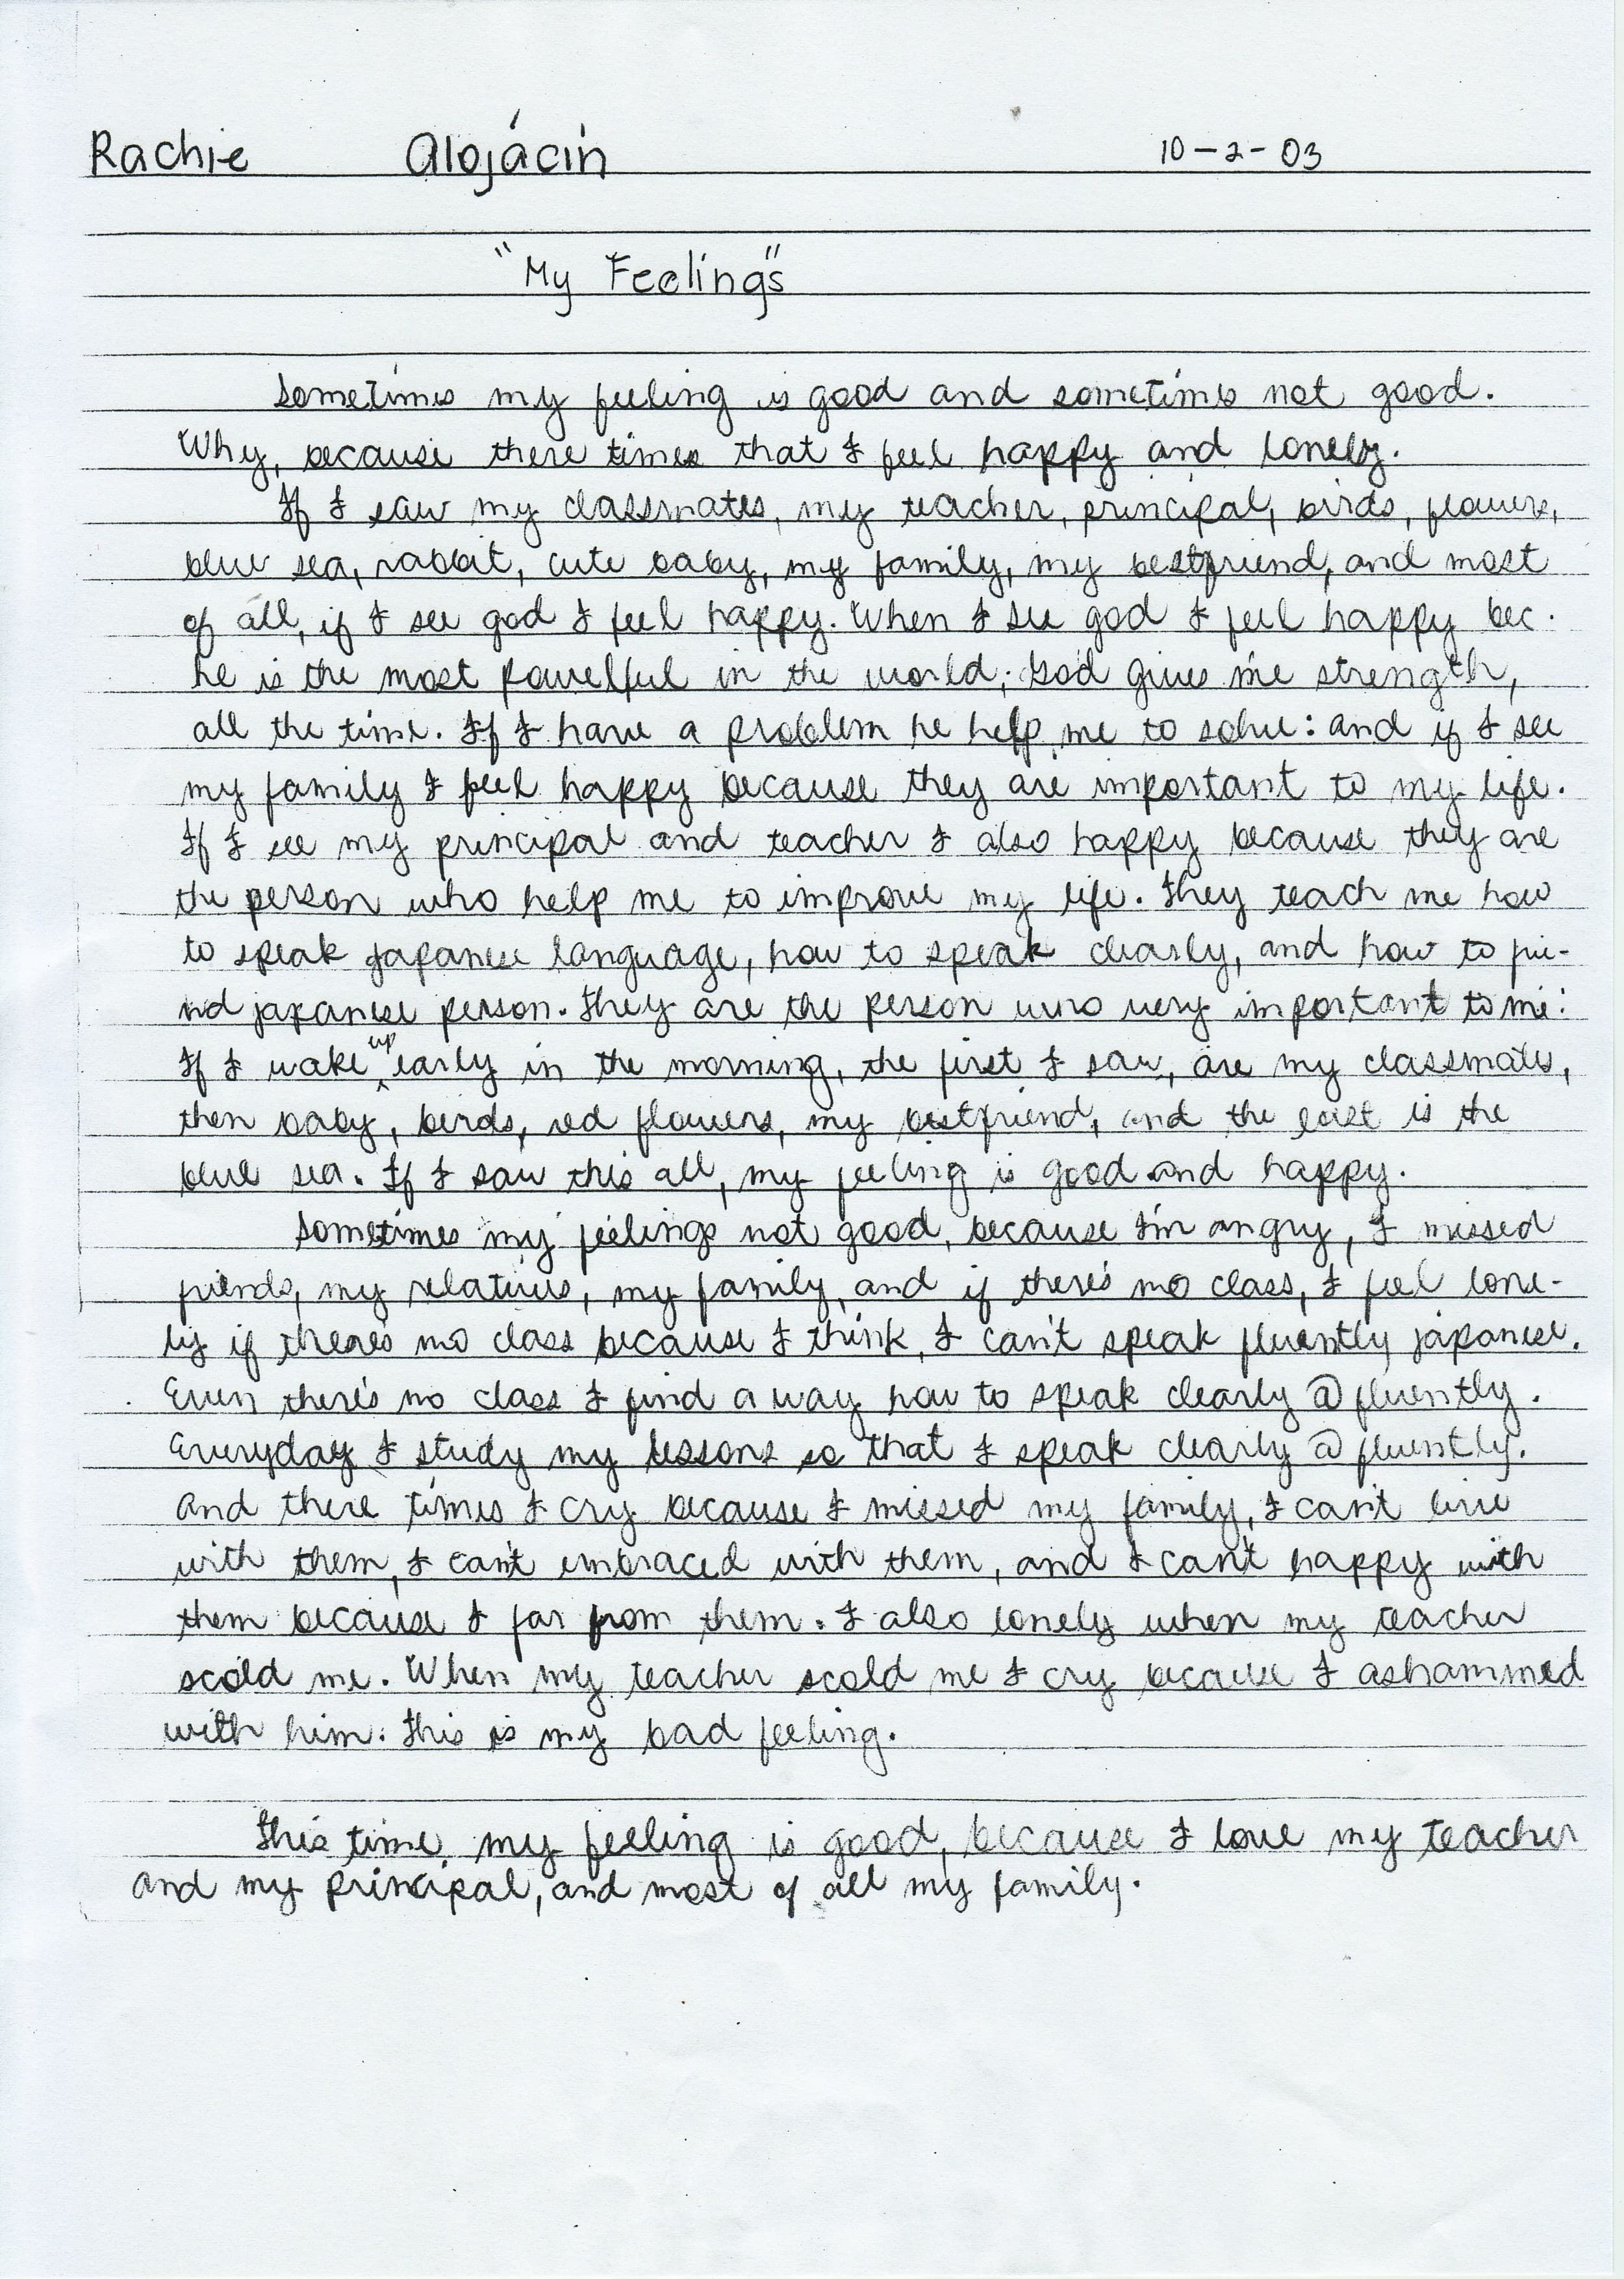 Rachie Alojácin 10-2-03
"My Feelings"
Sometimes my feeling is good and sometimes not good.
Why, because there times that I feel happy and lonely.
If I saw my classmates, my teacher, principal, birds, flowers,
blue sea, rabbit, cute baby, my family, my bestfriend, and most
of all, if I see god I feel happy. When I see god I feel happy bec.
he is the most powelful in the world; God gives me strength,
all the time. If I have a problem he help me to solve: and if I see
my family I feel happy because they are important to my life.
If I see my principal and teacher I also happy because they are
the person who help me to improve my life. They teach me how
to speak japanese language, how to speak clearly, and how to fri-
nd japanese person. They are the person who very important to me:
If I wake up early in the morning, the first I saw, are my classmates,
then baby, birds, red flowers, my bestfriend, and the last is the
blue sea. If I saw this all, my feeling is good and happy.
Sometimes my feelings not good, because I'm angry, I missed
friends, my relatives, my family, and if there's no class, I feel lone-
ly if there's no class because I think, I can't speak fluently japanese.
Even there's no class I find a way how to speak clearly @ fluently.
Everyday I study my lessons so that I speak clearly @ fluently.
And there times I cry because I missed my family, I can't live
with them, I can't embraced with them, and I can't happy with
them because I far from them. I also lonely when my teacher
scold me. When my teacher scold me I cry because I ashammed
with him. This is my bad feeling.
This time my feeling is good, because I love my teacher
and my principal, and most of all my family.